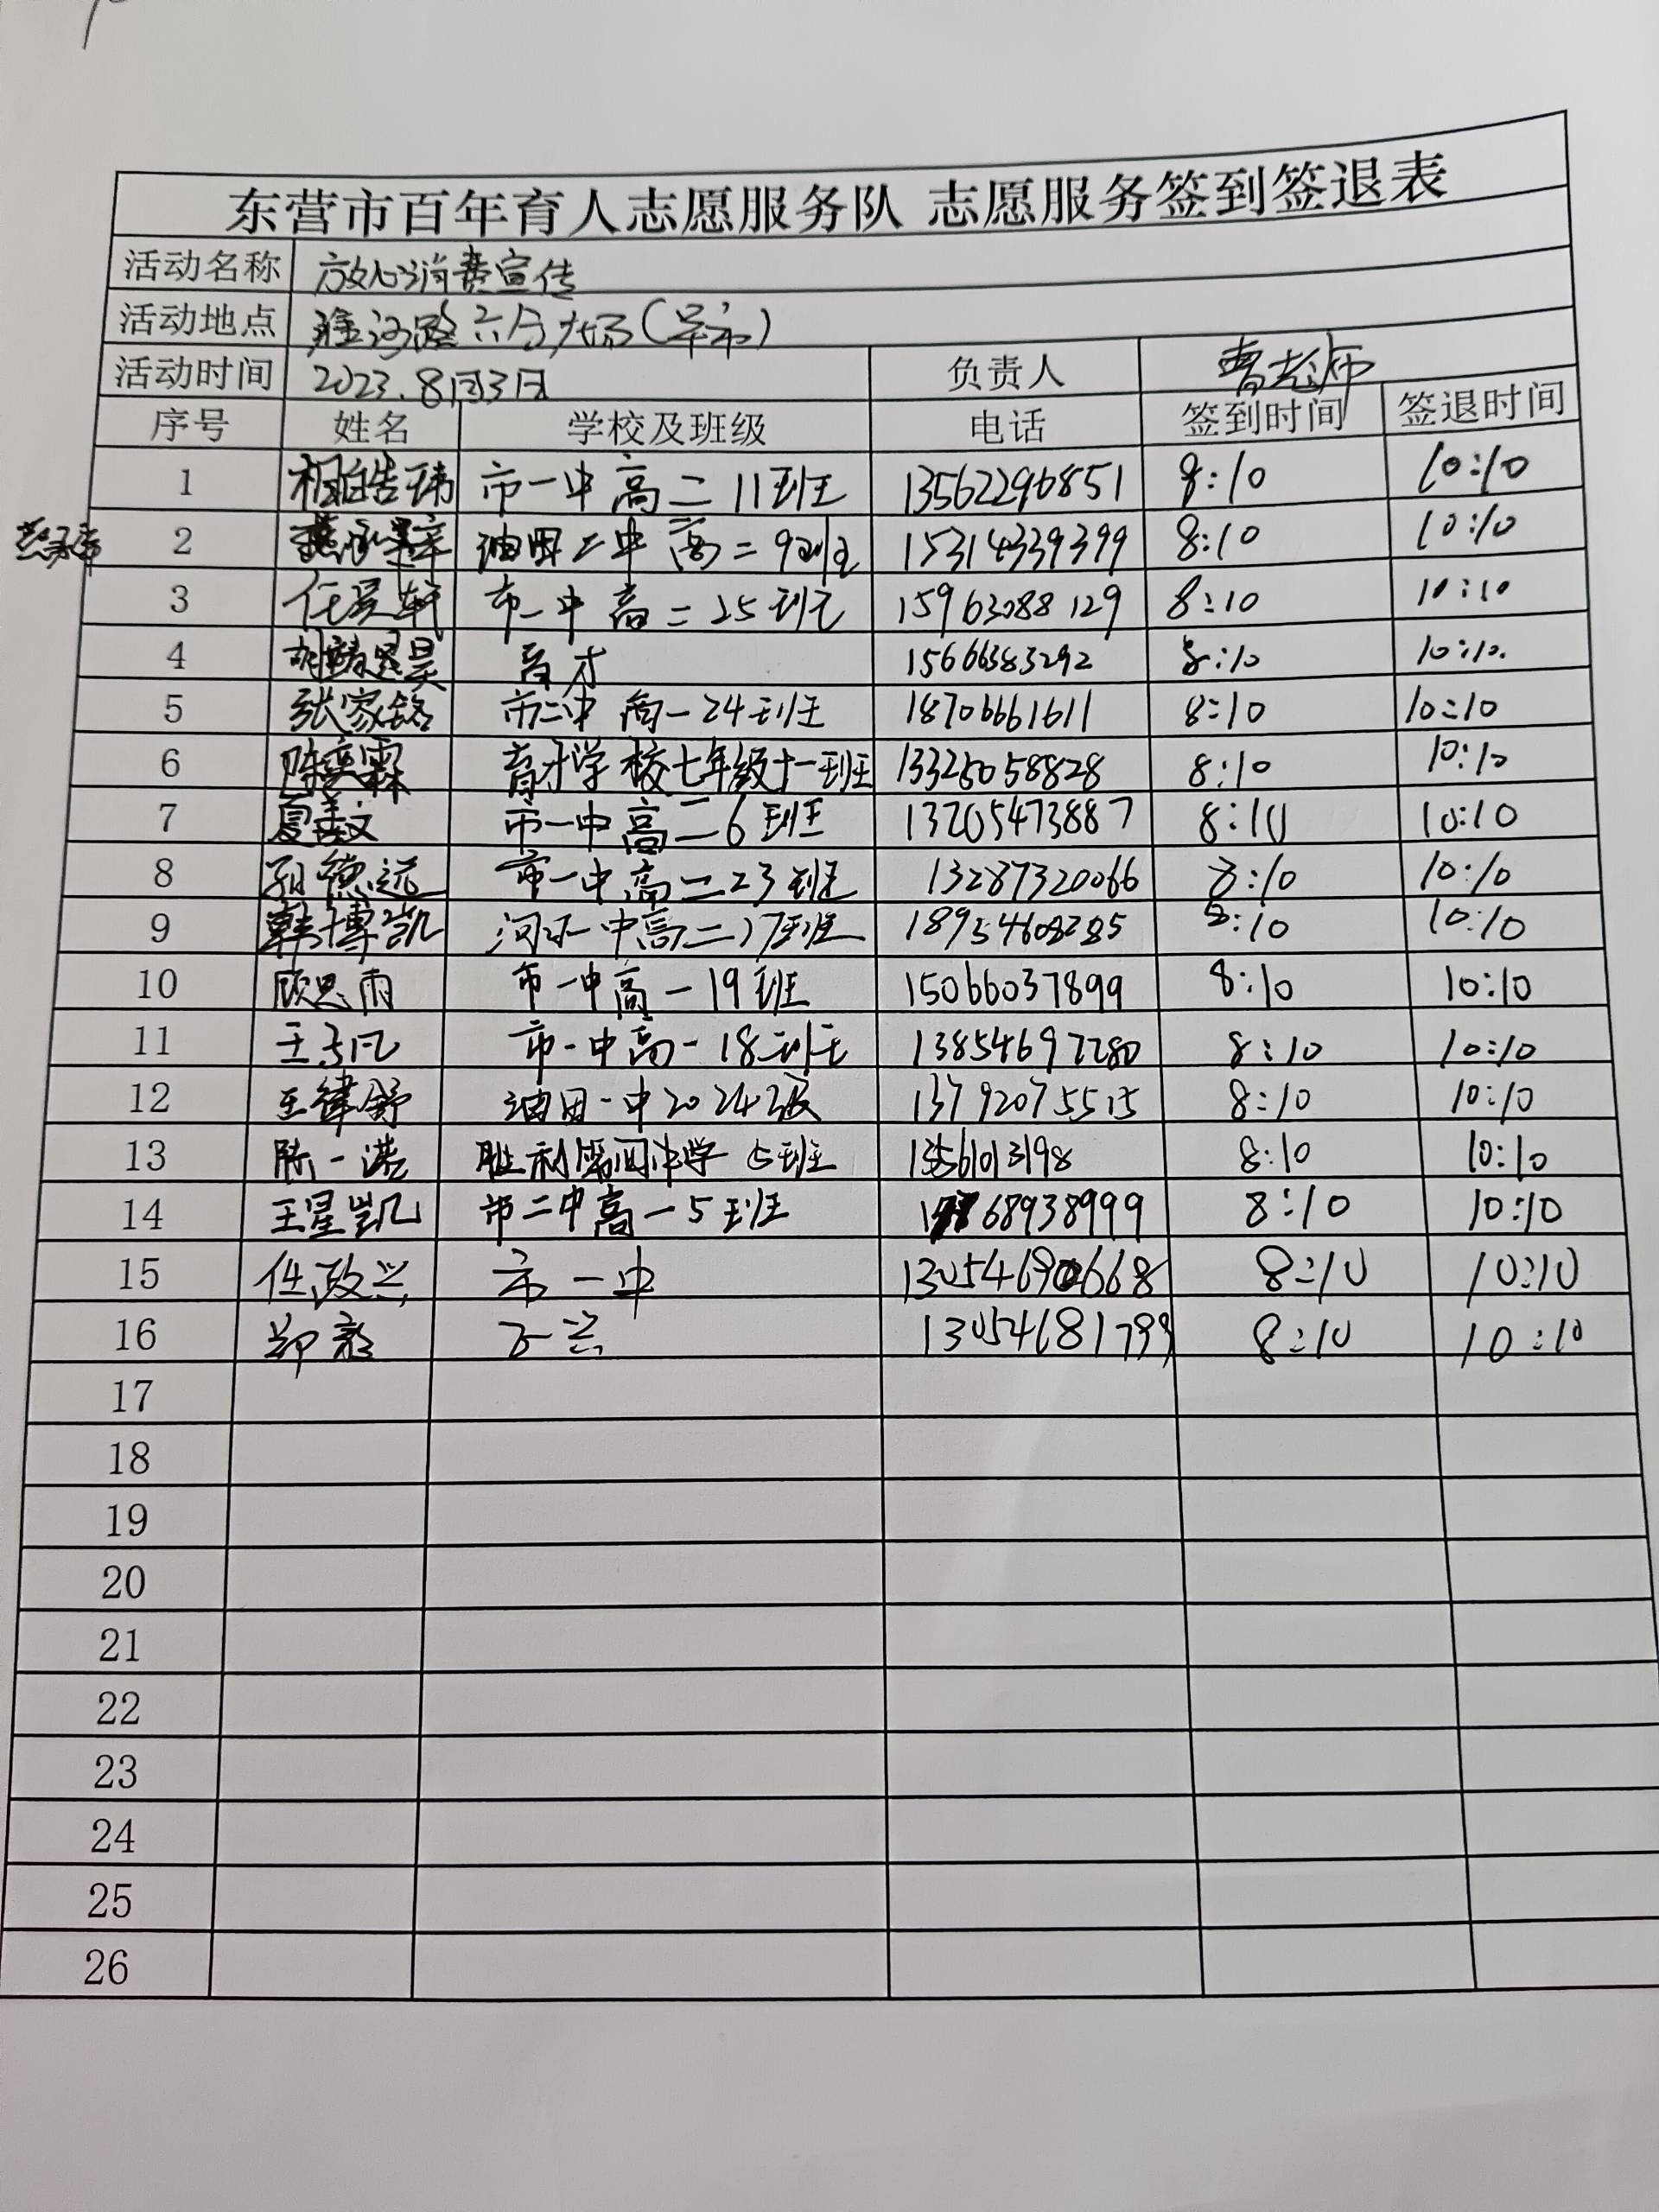 东营市百年育人志愿服务队 志愿服务签到签退表
活动名称 放心消费宣传
活动地点
活动时间 2023.8月3日 负责人 曹老师
序号 姓名 学校及班级 电话 签到时间 签退时间
1 相皓玮 市一中高二11班 13562296851 8:10 10:10
2 油田二中高二9班 15314339399 8:10 10:10
3 任昱轩 市一中高二25班 15963088129 8:10 10:10
4 育才 15666383292 8:10 10:10
5 张家铭 市二中高一24班 18706661611 8:10 10:10
6 陈奕霖 育才学校七年级十一班 13325058828 8:10 10:10
7 市一中高二6班 13205473887 8:10 10:10
8 孙德远 市一中高二23班 13287320066 8:10 10:10
9 韩博凯 河口一中高二17班 18954608285 8:10 10:10
10 顾思雨 市一中高一19班 15066037899 8:10 10:10
11 王子凡 市一中高一18班 13854697280 8:10 10:10
12 王律舒 油田一中2024级 13792075515 8:10 10:10
13 陈一诺 胜利第四中学 5班 8:10 10:10
14 王星凯 市二中高一5班 8:10 10:10
15 任政兴 市一中 8:10 10:10
16 郑毅 13054681799 8:10 10:10
17
18
19
20
21
22
23
24
25
26